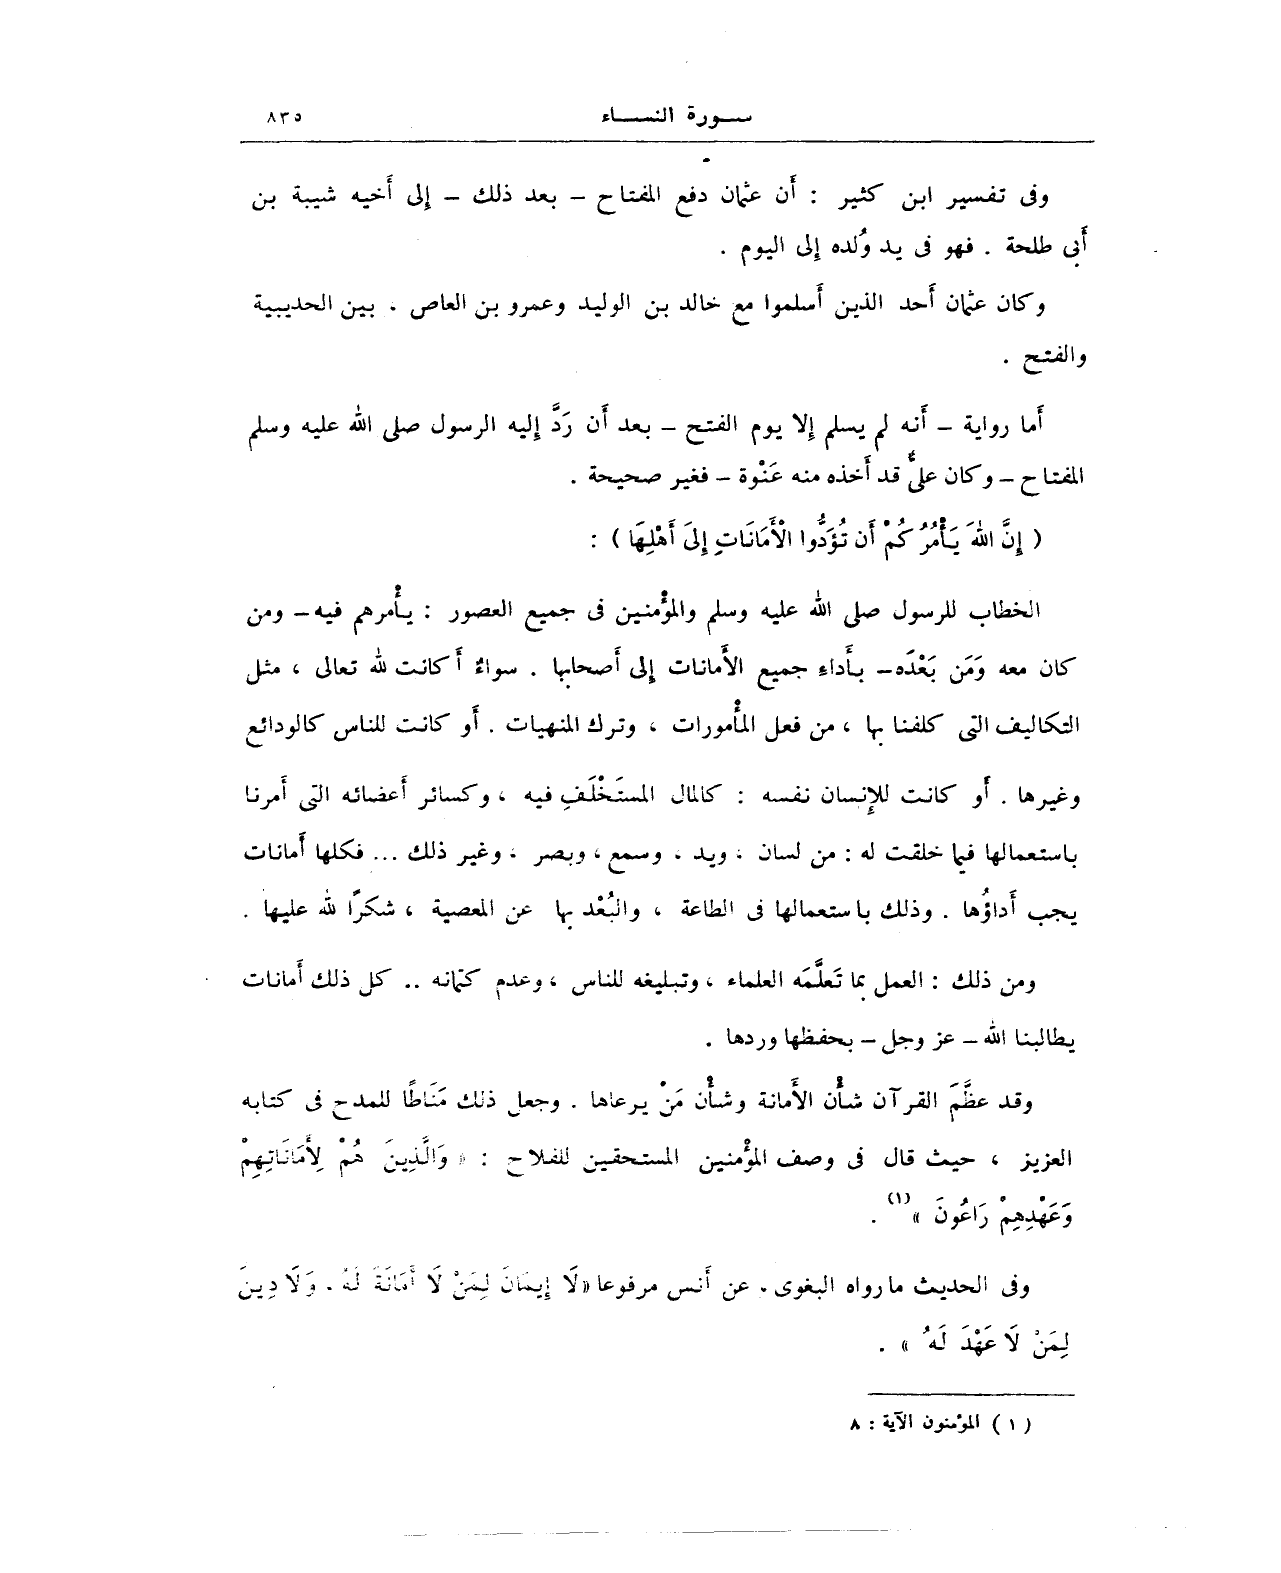 سورة النساء ٨٣٥
وفى تفسير ابن كثير : أَن عثمان دفع المفتاح – بعد ذلك – إِلى أَخيه شيبة بن
أَبى طلحة . فهو فى يد وُلده إِلى اليوم .
وكان عثمان أَحد الذين أَسلموا مع خالد بن الوليد وعمرو بن العاص ، بين الحديبية
والفتح .
أَما رواية – أَنه لم يسلم إِلا يوم الفتح – بعد أَن رَدَّ إِليه الرسول صلى الله عليه وسلم
المفتاح – وكان علىٌّ قد أَخذه منه عَنْوة – فغير صحيحة .
( إِنَّ اللهَ يَأْمُرُكُمْ أَن تُؤَدُّوا الْأَمَانَاتِ إِلَى أَهْلِهَا ) :
الخطاب للرسول صلى الله عليه وسلم والمؤْمنين فى جميع العصور : يأْمرهم فيه – ومن
كان معه وَمَن بَعْدَه – بأَداءِ جميع الأَمانات إِلى أَصحابها . سواءٌ أَكانت لله تعالى ، مثل
التكاليف التى كلفنا بها ، من فعل المأْمورات ، وترك المنهيات . أَو كانت للناس كالودائع
وغيرها . أَو كانت للإِنسان نفسه : كالمال المستَخْلَفِ فيه ، وكسائر أَعضائه التى أَمرنا
باستعمالها فيما خلقت له : من لسان ، ويد ، وسمع ، وبصر ، وغير ذلك ... فكلها أَمانات
يجب أَداؤُها . وذلك باستعمالها فى الطاعة ، والبُعْد بها عن المعصية ، شكرًا لله عليها .
ومن ذلك : العمل بما تَعلَّمَه العلماء ، وتبليغه للناس ، وعدم كتمانه .. كل ذلك أَمانات
يطالبنا الله – عز وجل – بحفظها وردها .
وقد عظَّمَ القرآن شأْن الأَمانة وشأْن مَنْ يرعاها . وجعل ذلك مَنَاطًا للمدح فى كتابه
العزيز ، حيث قال فى وصف المؤْمنين المستحقين للفلاح : « وَالَّذِينَ هُمْ لِأَمَانَاتِهِمْ
وَعَهْدِهِمْ رَاعُونَ »(١) .
وفى الحديث ما رواه البغوى ، عن أَنس مرفوعا «لَا إِيمَانَ لِمَنْ لَا أَمَانَةَ لَهُ . وَلَا دِينَ
لِمَنْ لَا عَهْدَ لَهُ » .
( ١ ) المؤمنون الآية : ٨